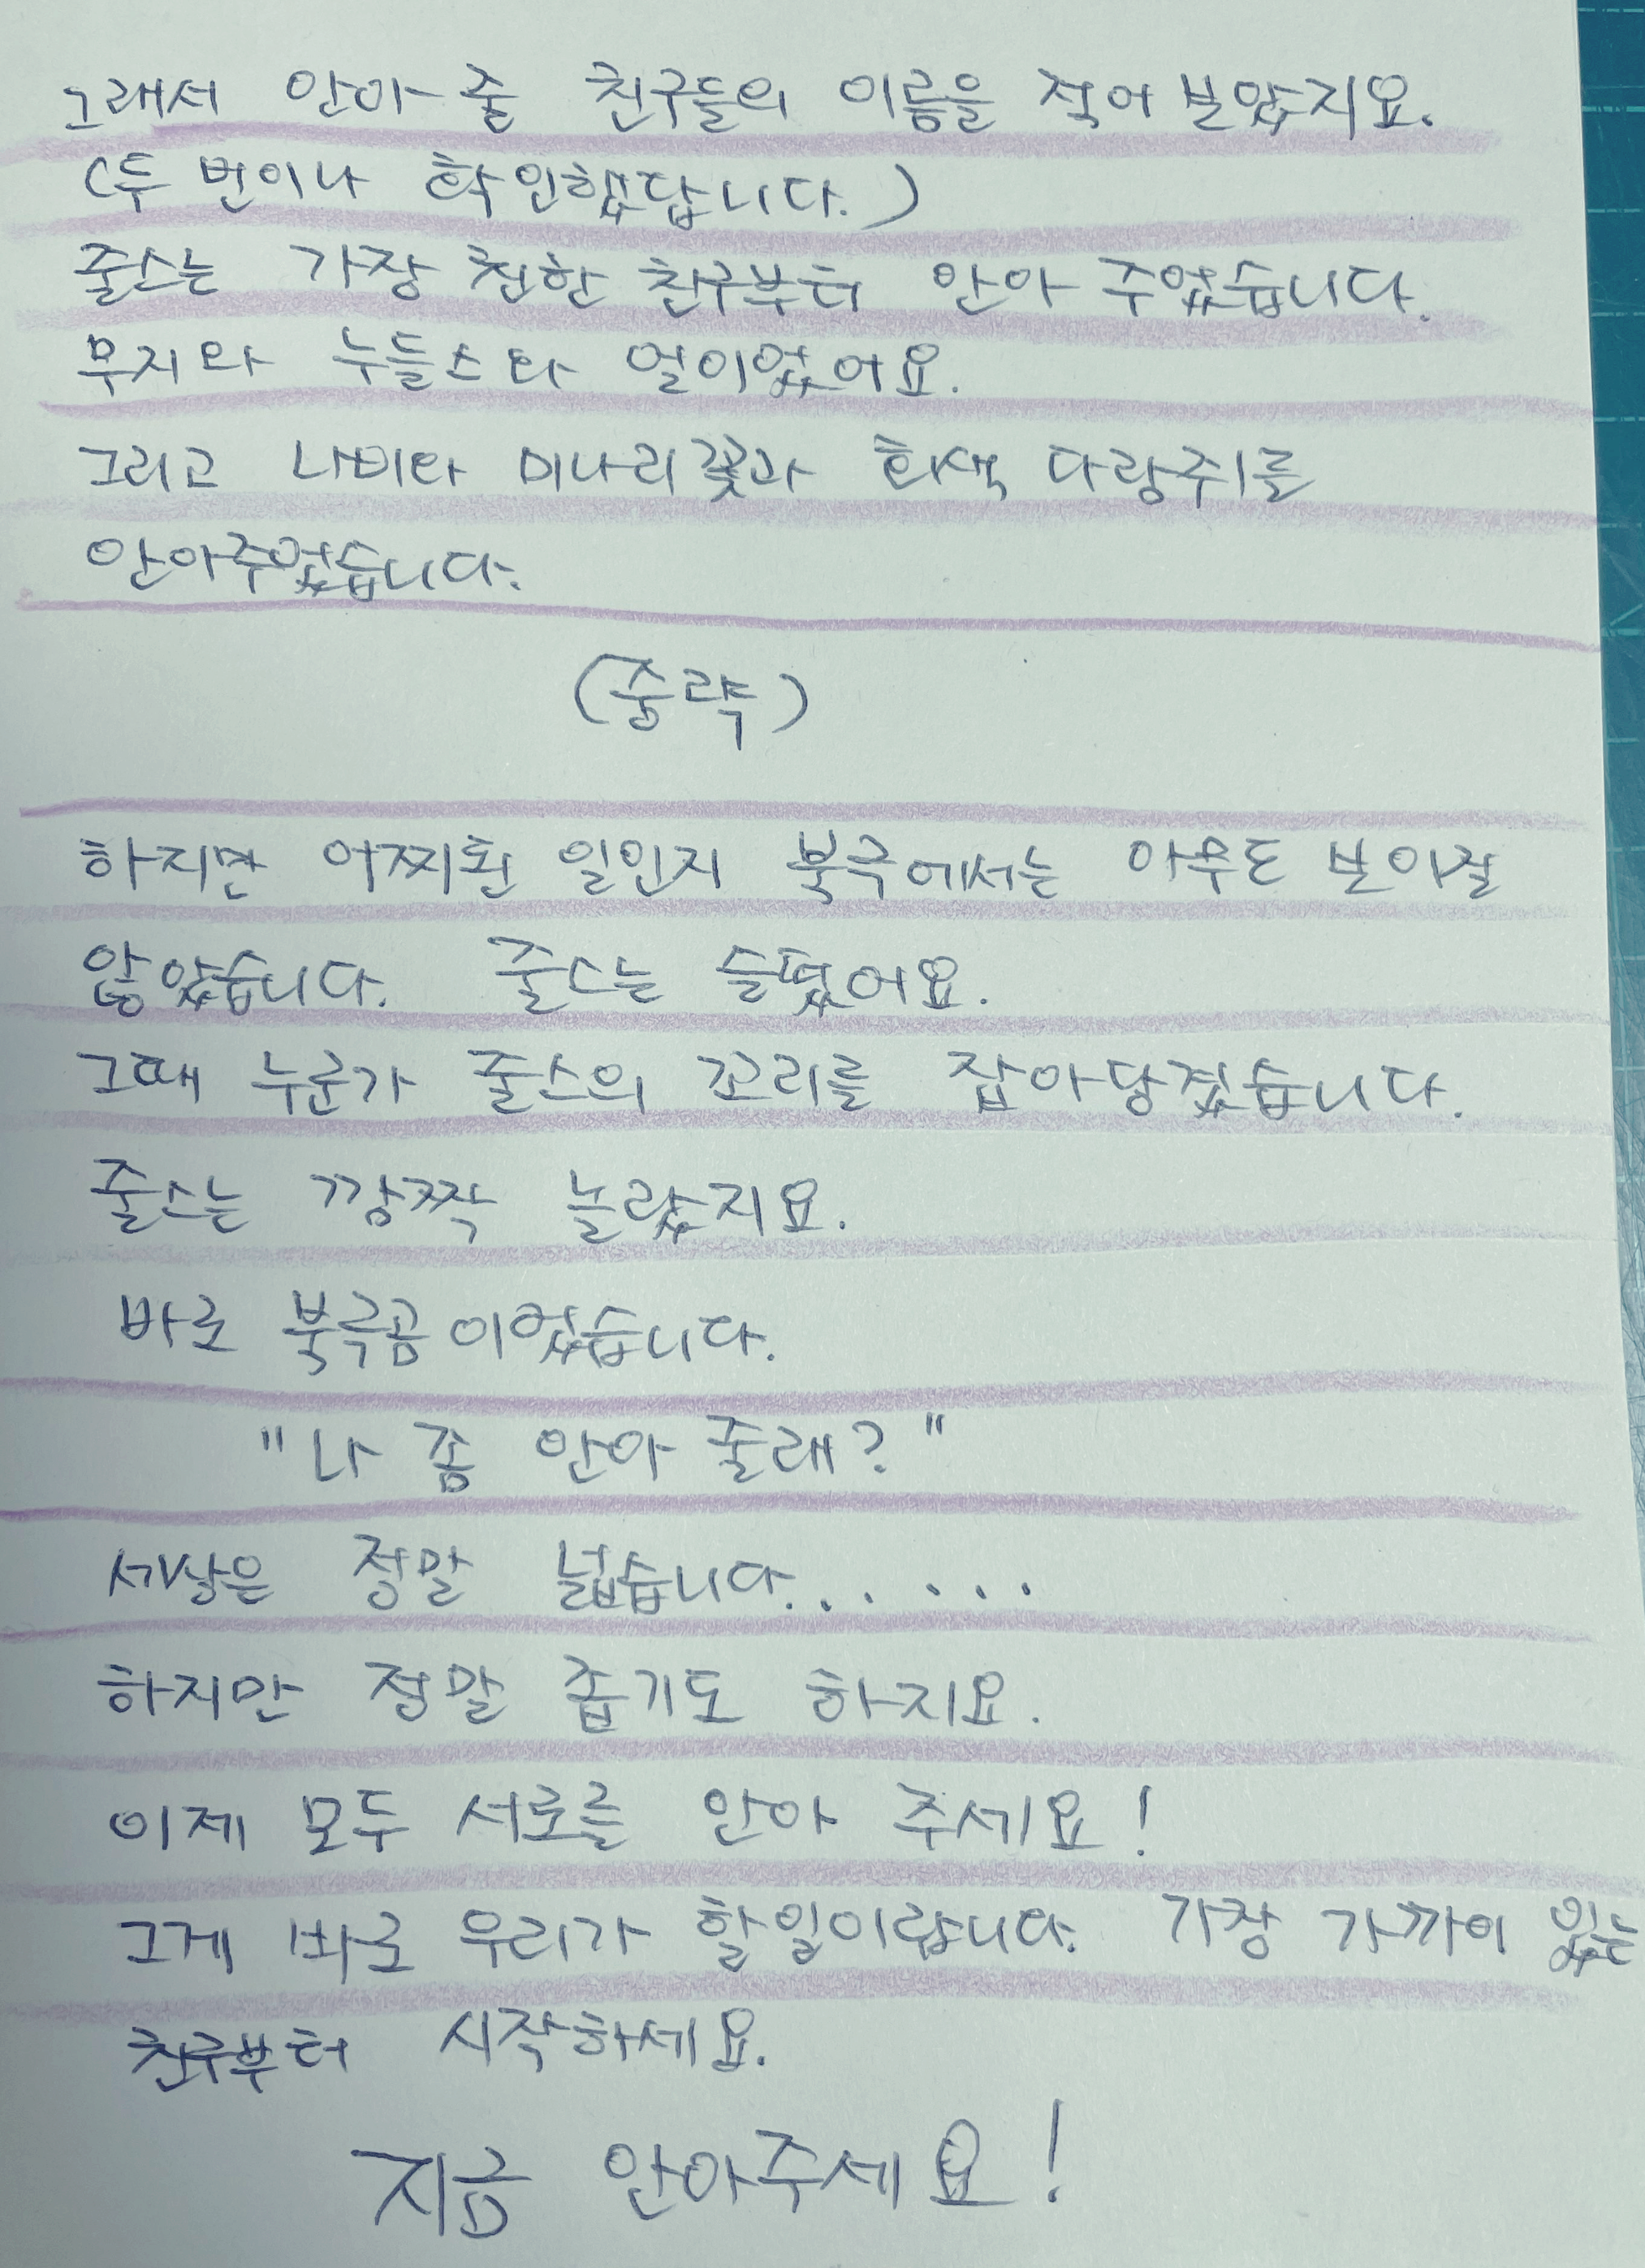 그래서 안아 줄 친구들의 이름을 적어 보았지요.
(두 번이나 확인했답니다.)
줄스는 가장 친한 친구부터 안아 주었습니다.
무지와 누들스와 얼이었어요.
그리고 나비와 미나리꽃과 회색 다람쥐를
안아주었습니다.
(중략)
하지만 어찌된 일인지 북극에서는 아무도 보이질
않았습니다. 줄스는 슬펐어요.
그때 누군가 줄스의 꼬리를 잡아당겼습니다.
줄스는 깜짝 놀랐지요.
바로 북극곰이었습니다.
"나 좀 안아 줄래?"
세상은 정말 넓습니다......
하지만 정말 좁기도 하지요.
이제 모두 서로를 안아 주세요!
그게 바로 우리가 할일이랍니다. 가장 가까이 있는
친구부터 시작하세요.
지금 안아주세요!